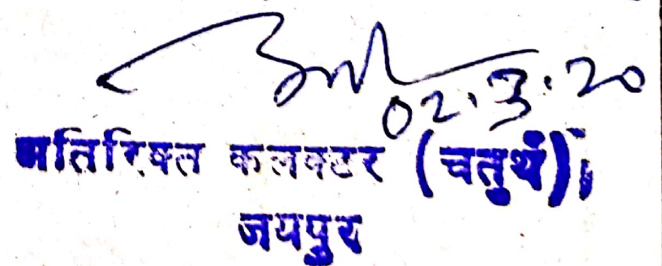 02.3.20
अतिरिक्त कलक्टर (चतुर्थ)
जयपुर